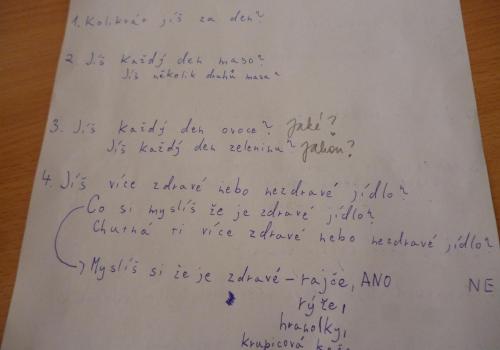 1. Kolikrát jíš za den?
2. Jíš každý den maso?
Jíš několik druhů masa?
3. Jíš každý den ovoce? Jaké?
Jíš každý den zeleninu? Jakou?
4. Jíš více zdravé nebo nezdravé jídlo?
Co si myslíš že je zdravé jídlo?
Chutná ti více zdravé nebo nezdravé jídlo?
Myslíš si že je zdravé - rajče, ANO NE
rýže,
hranolky,
krupicová